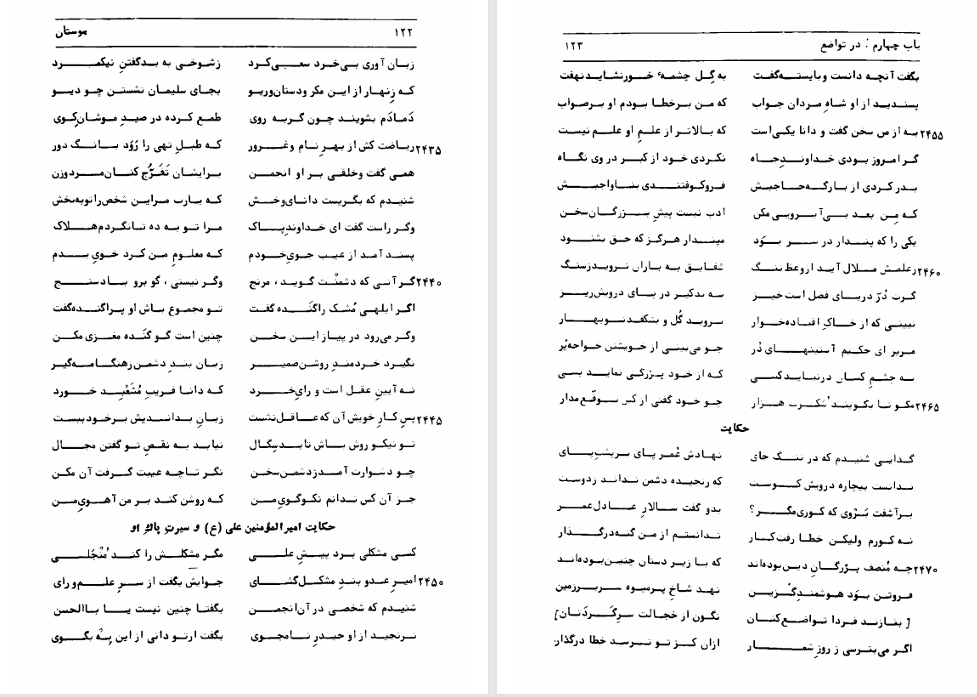 ۱۲۲ بوستان
زبان آوری بی‌خرد سعی کرد ز شوخی به بد گفتن نیکمرد
که زنهار از این مکر و دستان و ریو بجای سلیمان نشستن چو دیو
دمادم بشویند چون گربه روی طمع کرده در صید موشان کوی
۲۴۳۵ ریاضت کش از بهر نام و غرور که طبل تهی را رود بانگ دور
همی گفت و خلقی بر او انجمن بر ایشان تفرّج کنان مرد و زن
شنیدم که بگریست دانای وخش که یارب مر این شخص را توبه بخش
وگر راست گفت ای خداوند پاک مرا توبه ده تا نگردم هلاک
پسند آمد از عیب جوی خودم که معلوم من کرد خوی بدم
۲۴۴۰ گر آنی که دشمنت گوید، مرنج وگر نیستی، گو برو باد سنج
اگر ابلهی مُشک را گَنده گفت تو مجموع باش او پراگنده گفت
وگر می‌رود در پیاز این سخن چنین است گو گَنده مغزی مکن
نگیرد خردمند روشن ضمیر زبان بند دشمن ز هنگامه گیر
نه آیین عقل است و رای خرد که دانا فریب مُشَعبِد خورد
۲۴۴۵ پس کار خویش آن که عاقل نشست زبان بداندیش بر خود ببست
تو نیکو روش باش تا بدسگال نیابد به نقص تو گفتن مجال
چو دشوارت آمد ز دشمن سخن نگر تا چه عیبت گرفت آن مکن
جز آن کس ندانم نکو گوی من که روشن کند بر من آهوی من
حکایت امیرالمؤمنین علی (ع) و سیرت پاک او
کسی مشکلی برد پیش علی مگر مشکلش را کند مُنجَلی
۲۴۵۰ امیر عدو بند مشکل گشای جوابش بگفت از سر علم و رای
شنیدم که شخصی در آن انجمن بگفتا چنین نیست یا باالحسن
نرنجید از او حیدر نامجوی بگفت ار تو دانی از این به بگوی
باب چهارم: در تواضع ۱۲۳
بگفت آنچه دانست و بایسته گفت به گِل چشمهٔ خور نشاید نهفت
پسندید از او شاه مردان جواب که من بر خطا بودم او بر صواب
۲۴۵۵ به از من سخن گفت و دانا یکی است که بالاتر از علم او علم نیست
گر امروز بودی خداوند جاه نکردی خود از کبر در وی نگاه
بدر کردی از بارگه حاجبش فرو کوفتندی بناواجبش
که من بعد بی‌آبرویی مکن ادب نیست پیش بزرگان سخن
یکی را که پندار در سر بود مپندار هرگز که حق بشنود
۲۴۶۰ ز علمش ملال آید از وعظ ننگ شقایق به باران نروید ز سنگ
گرت دُرّ دریای فضل است خیز به تذکیر در پای درویش ریز
نبینی که از خاک افتاده خوار بروید گُل و بشکفد نوبهار
مریز ای حکیم آستینهای دُر چو می‌بینی از خویشتن خواجه پُر
به چشم کسان درنیاید کسی که از خود بزرگی نماید بسی
۲۴۶۵ مگو تا بگویند شکرت هزار چو خود گفتی از کس توقّع مدار
حکایت
گدایی شنیدم که در تنگ جای نهادش عُمر پای بر پشت پای
ندانست بیچاره درویش کوست که رنجیده دشمن نداند ز دوست
برآشفت بَرْوی که کوری مگر؟ بدو گفت سالار عادل عمر
نه کورم ولیکن خطا رفت کار ندانستم از من گنه در گذار
۲۴۷۰ چه مُنصف بزرگان دین بوده‌اند که با زیر دستان چنین بوده‌اند
فروتن بود هوشمند گُزین نهد شاخ پر میوه سر بر زمین
[ بنازند فردا تواضع کنان نگون از خجالت سر گَردَنان ]
اگر می‌بترسی ز روز شمار ازان کز تو ترسد خطا درگذار